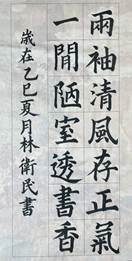 兩袖清風存正氣
一間陋室透書香
歲在乙巳夏月林衛民書